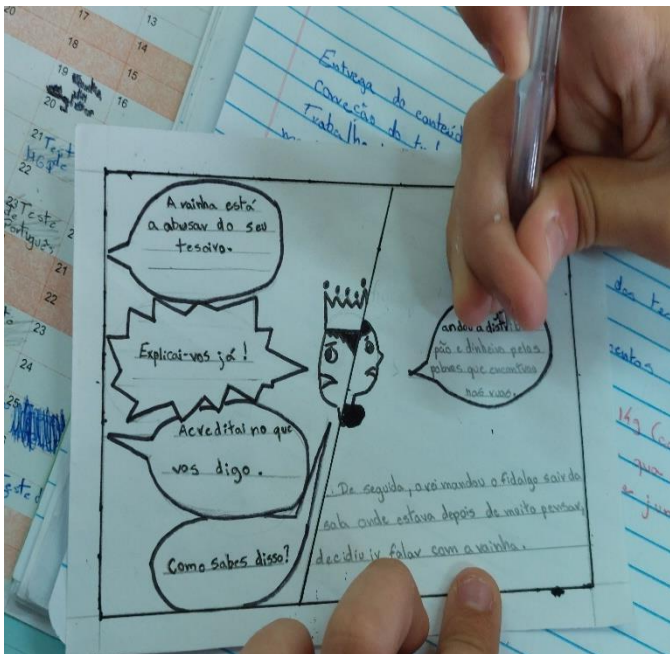 20
17
13
18
14
19
15
20
16
21
22
23
Teste
de
Português
21
22
23
24
25
Entrega do conteúdo
correção do
Trabalho
A rainha está
a abusar do seu
tesoiro.
Explicai-vos já!
Acreditai no que
vos digo.
Como sabes disso?
andou a distrib
pão e dinheiro pelas
pobres que encontrava
nas ruas.
De seguida, o rei mandou o fidalgo sair da
sala onde estava depois de muito pensar,
decidiu ir falar com a rainha.
dos